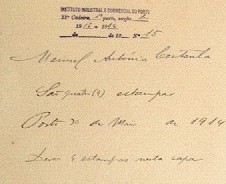 INSTITUTO INDUSTRIAL E COMERCIAL DO PORTO
Cadeira, 1ª parte, secção
de de 19 Nº 15
Manuel António
São quatro (4) estampas
Porto 30 de Maio de 1914
4 estampas nesta capa